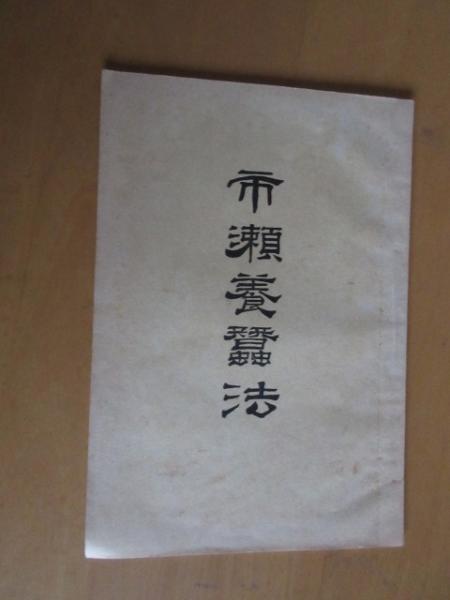 市瀬養蠶法